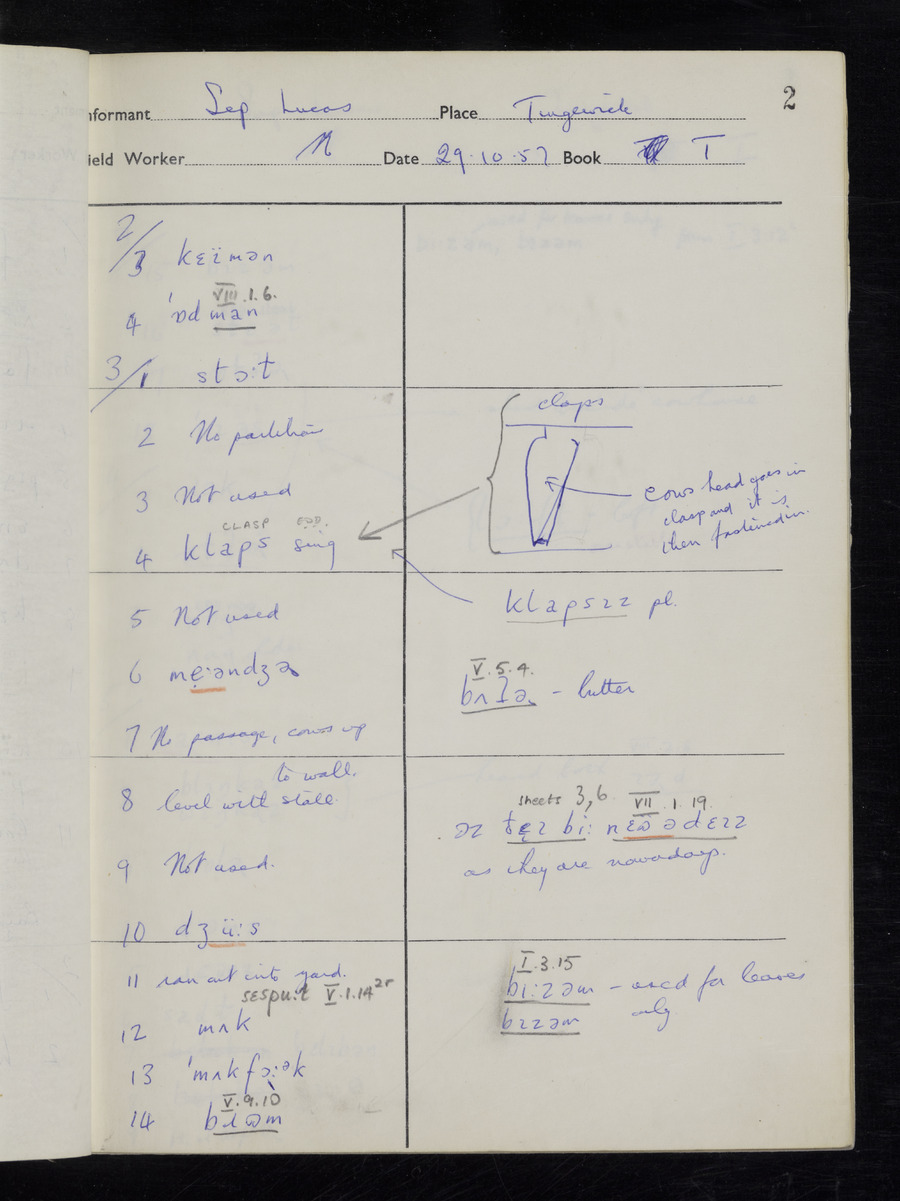 2
Informant Sep Lucas Place Tingewick
Field Worker N Date 29.10.57 Book I
2/3 kɛïmən
VIII.1.6.
4 ˈɒdman
3/1 stɔːt
2 No partition
3 Not used
CLASP
4 klaps sing
5 Not used
6 mẹːəndʒə
7 No passage, cows up
to wall.
8 level with stall.
9 Not used.
10 dʒüːs
11 ran out into yard.
sɛspuːt V.1.14
12 mʌk
13 ˈmʌkfɔːək
V.9.10
14
claps
cows head goes in
clasp and it is
then fastened in.
klapsɪz pl.
V.5.4.
bʌʔə – butter
sheets 3,6 VII.1.19.
as they are nowadays.
I.3.15
biːzəm – used for leaves
only
bɪzəm